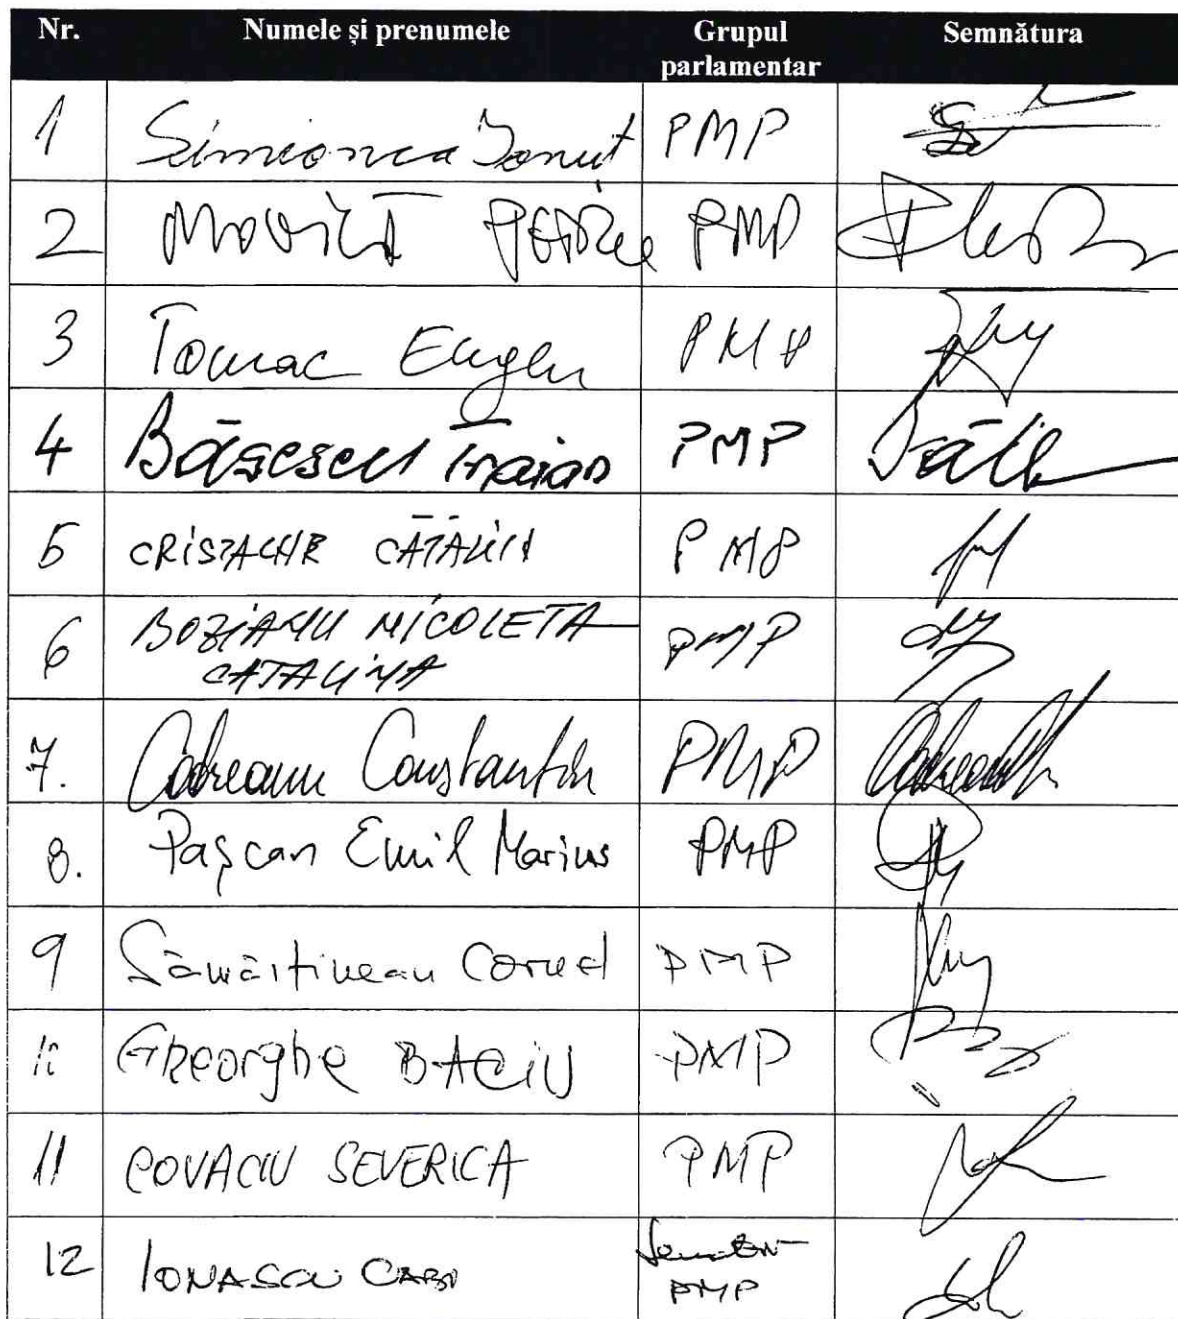 Nr. Numele și prenumele Grupul parlamentar Semnătura
1 Simionca Ionuț PMP
2 Movilă Petru PMP
3 Tomac Eugen PMP
4 Băsescu Traian PMP
5 CRISTACHE CĂTĂLIN PMP
6 BOZIANU NICOLETA
CATALINA PMP
7. Codreanu Constantin PMP
8. Pașcan Emil Marius PMP
9 Sămărtinean Cornel PMP
10 Gheorghe BACIU PMP
11 COVACIU SEVERICA PMP
12 IONASCU Senator
PMP